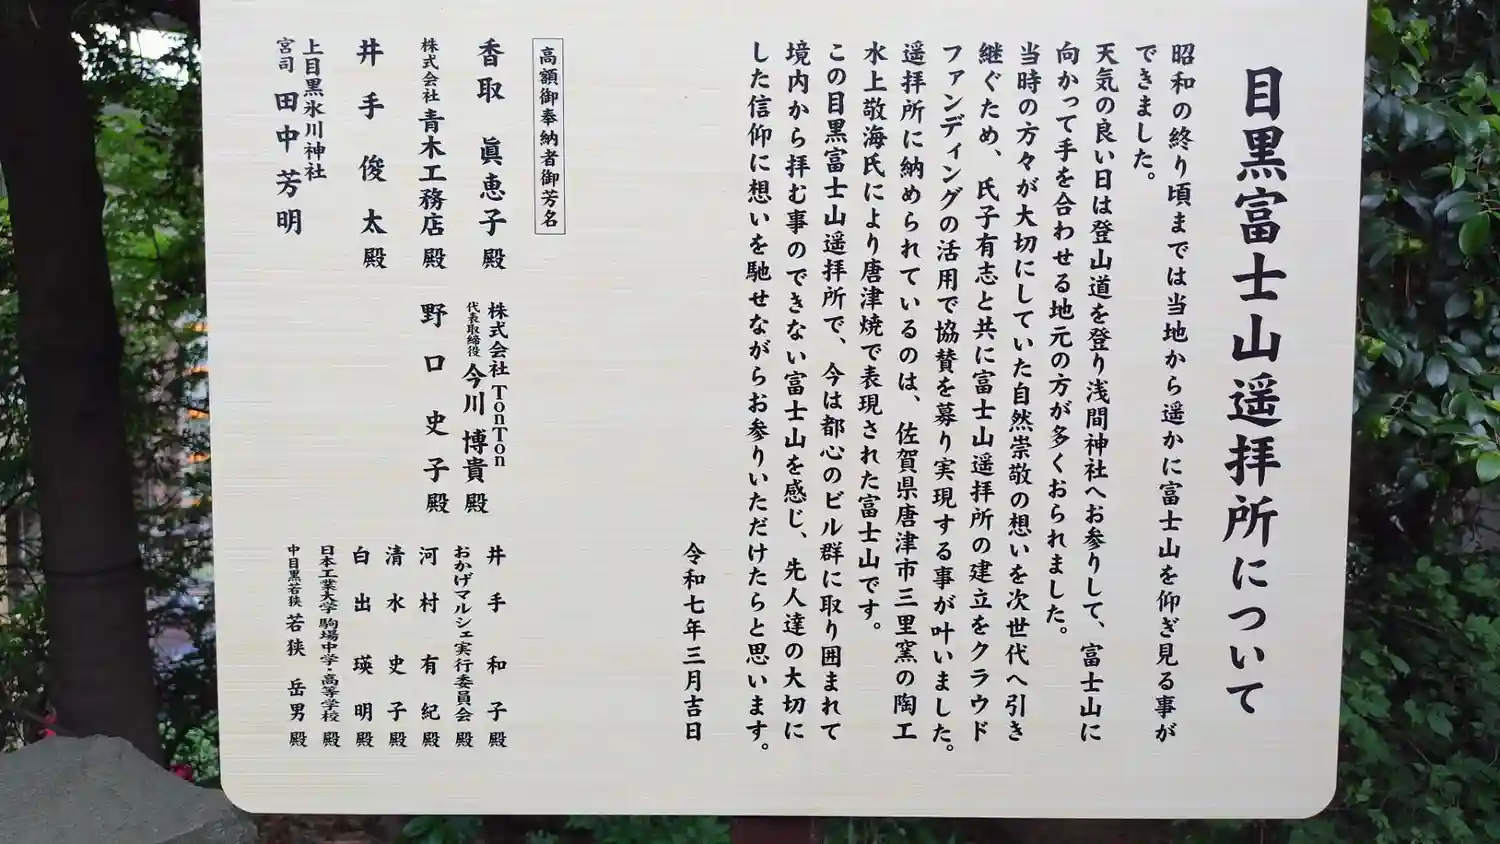 目黒富士山遥拝所について
昭和の終り頃までは当地から遥かに富士山を仰ぎ見る事が
できました。
天気の良い日は登山道を登り浅間神社へお参りして、富士山に
向かって手を合わせる地元の方が多くおられました。
当時の方々が大切にしていた自然崇敬の想いを次世代へ引き
継ぐため、氏子有志と共に富士山遥拝所の建立をクラウド
ファンディングの活用で協賛を募り実現する事が叶いました。
遥拝所に納められているのは、佐賀県唐津市三里窯の陶工
水上敬海氏により唐津焼で表現された富士山です。
この目黒富士山遥拝所で、今は都心のビル群に取り囲まれて
境内から拝む事のできない富士山を感じ、先人達の大切に
した信仰に想いを馳せながらお参りいただけたらと思います。
令和七年三月吉日
高額御奉納者御芳名
香取 眞恵子殿
株式会社TonTon
代表取締役 今川 博貴殿
井手 和子殿
おかげマルシェ実行委員会殿
株式会社 青木工務店殿
野口 史子殿
河村 有紀殿
清水 史子殿
井手 俊太殿
白出 瑛明殿
日本工業大学 駒場中学・高等学校殿
中目黒若狭 若狭 岳男殿
上目黒氷川神社
宮司 田中 芳明